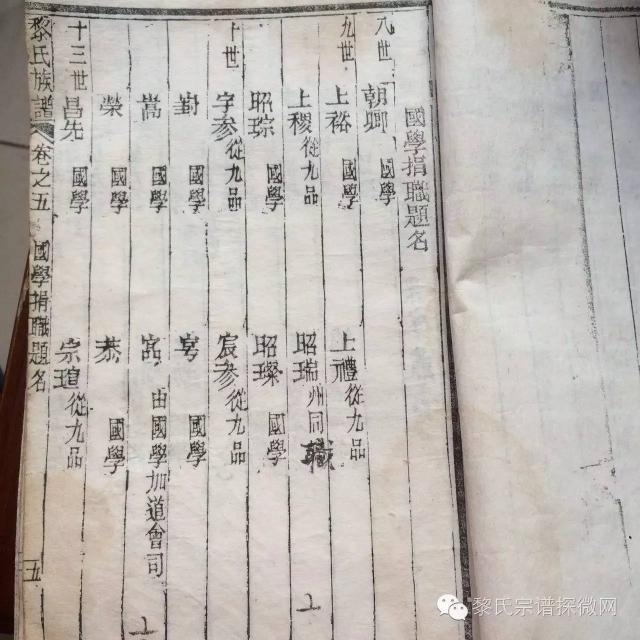 國學捐職題名
八世 朝卿 國學
九世 上裕 國學 上禮 從九品
上稷 從九品 昭瑞 州同職
昭琮 國學 昭璨 國學
十世 字參 從九品 宸參 從九品
國學 國學
嵩 國學 由國學加道會司
榮 國學 恭 國學
十三世 昌先 國學 宗瑄 從九品
黎氏族譜 卷之五 國學捐職題名 五
上
上
黎氏宗谱探微网